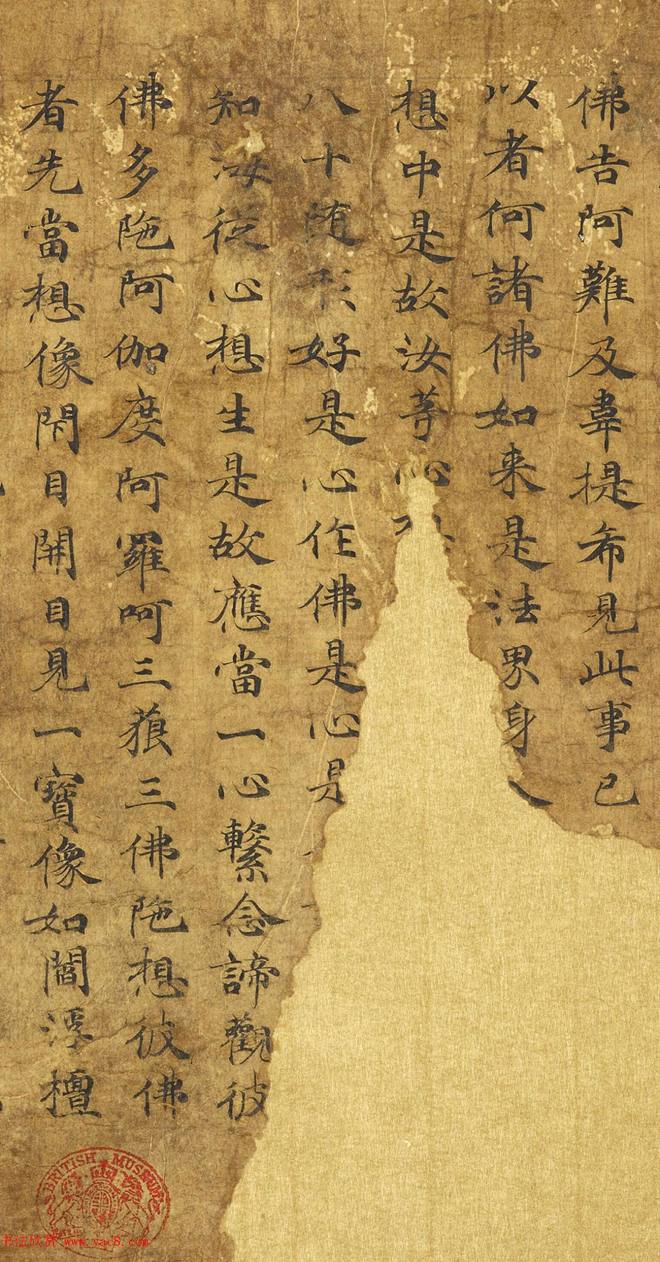 佛告阿難及韋提希見此事已
以者何諸佛如来是法界身
想中是故汝荨心想
八十随形好是心作佛是心是
知海從心想生是故應當一心繫念諦觀彼
佛多陁阿伽度阿羅呵三藐三佛陁想彼佛
者先當想像閇目開目見一寶像如閻浮檀
BRITISH MUSEUM
www.yac8.com